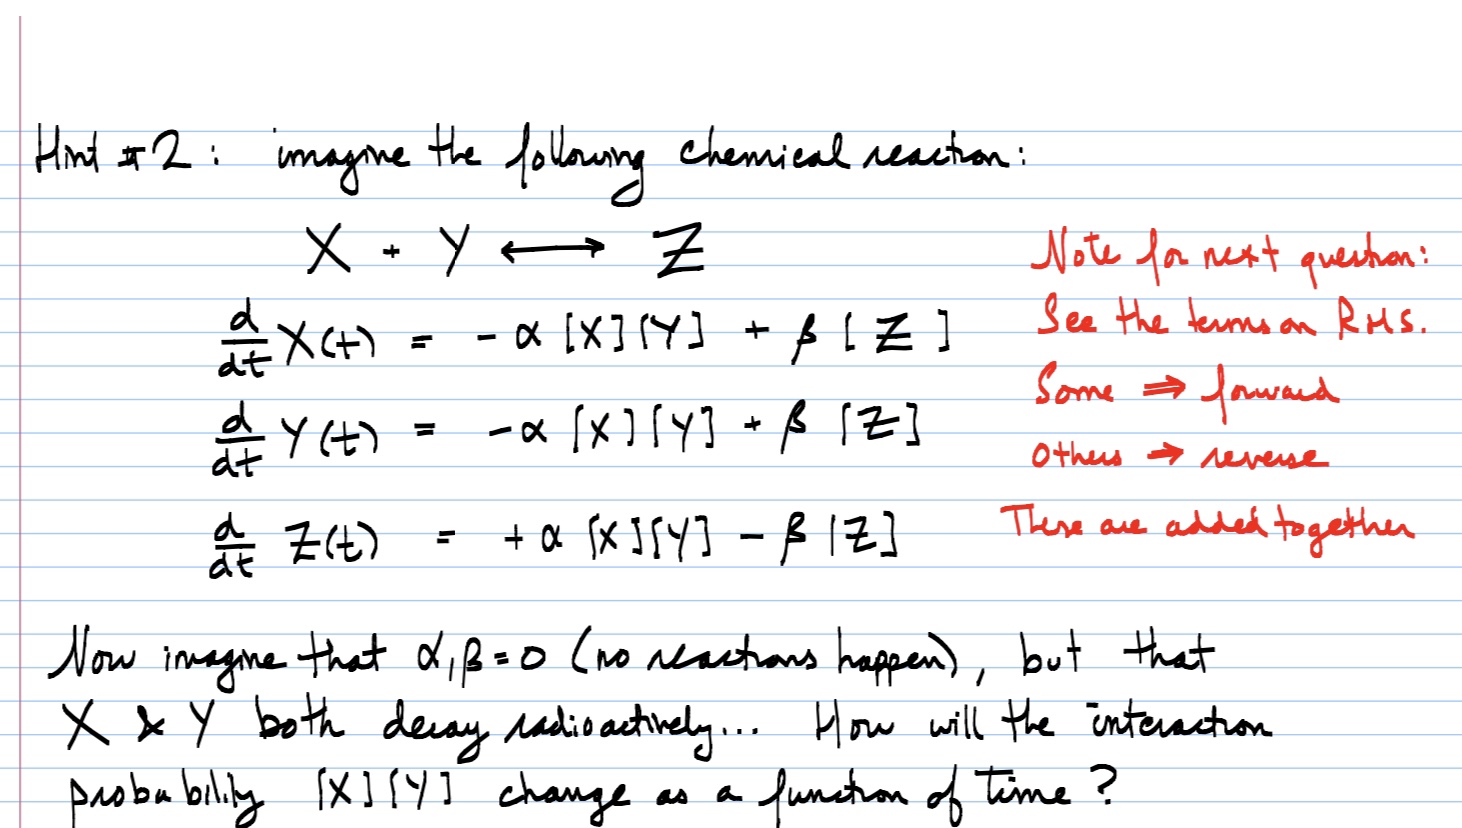 Hint #2: imagine the following chemical reaction:
X + Y ⟷ Z
d/dt X(t) = - α [X][Y] + β [Z]
d/dt Y(t) = - α [X][Y] + β [Z]
d/dt Z(t) = + α [X][Y] - β [Z]
Note for next question:
See the terms on RHS.
Some ⇒ forward
Others → reverse
These are added together
Now imagine that α, β = 0 (no reactions happen), but that
X & Y both decay radioactively... How will the interaction
probability [X][Y] change as a function of time?